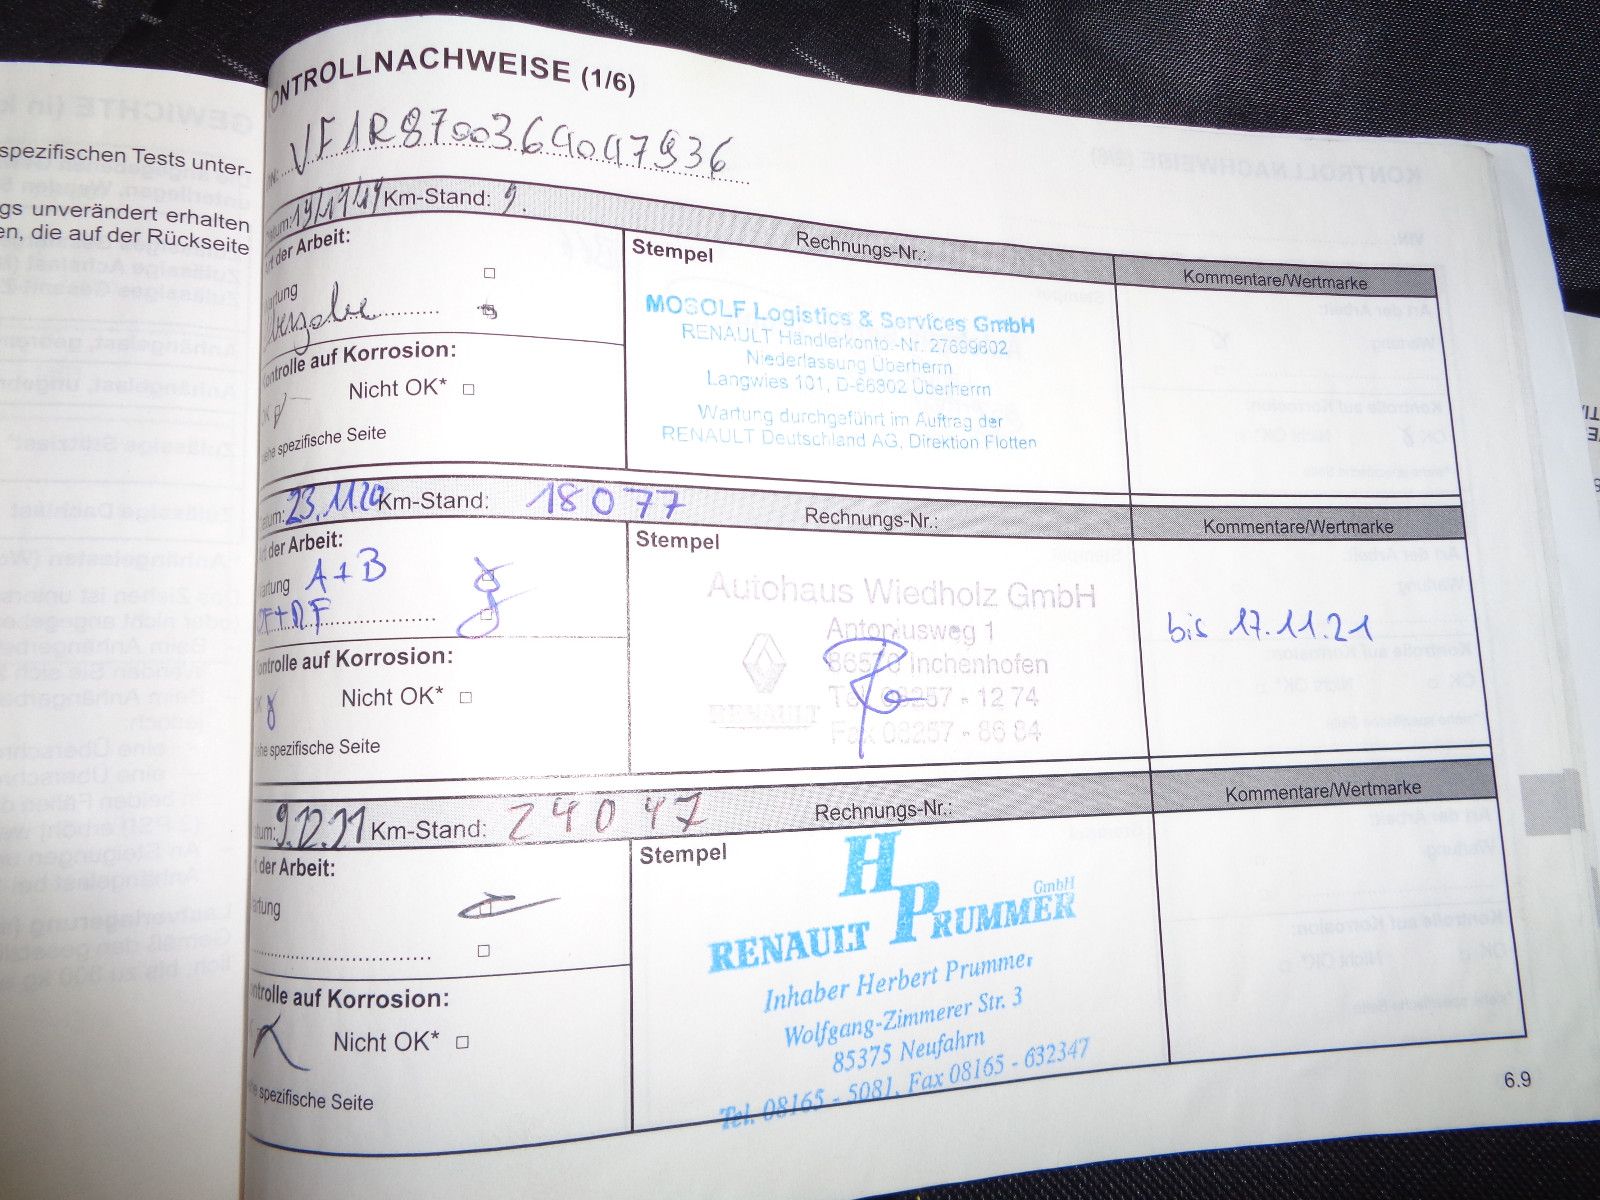 spezifischen Tests unter-
gs unverändert erhalten
en, die auf der Rückseite
ONTROLLNACHWEISE (1/6)
VF1R8700364047936
Km-Stand: 9.
Rechnungs-Nr.:
Kommentare/Wertmarke
der Arbeit:
Stempel
artung
MOSOLF Logistics & Services GmbH
RENAULT Händlerkonto.-Nr. 27699802
Niederlassung Überherrn
Langwies 101, D-66802 Überherrn
Wartung durchgeführt im Auftrag der
RENAULT Deutschland AG, Direktion Flotten
ontrolle auf Korrosion:
OK
Nicht OK*
ehe spezifische Seite
atum: 23.11.20 Km-Stand: 18077
Rechnungs-Nr.:
Kommentare/Wertmarke
t der Arbeit:
Stempel
artung A+B
Autohaus Wiedholz GmbH
Antoniusweg 1
86570 Inchenhofen
Tel. 08257 - 12 74
Fax 08257 - 86 84
RENAULT
bis 17.11.21
ontrolle auf Korrosion:
Nicht OK*
ehe spezifische Seite
tum: 9.12.21 Km-Stand: 24047
Rechnungs-Nr.:
Kommentare/Wertmarke
t der Arbeit:
Stempel
artung
H
RENAULT PRUMMER GmbH
Inhaber Herbert Prummer
Wolfgang-Zimmerer Str. 3
85375 Neufahrn
Tel. 08165 - 5081, Fax 08165 - 632347
ntrolle auf Korrosion:
Nicht OK*
ehe spezifische Seite
6.9